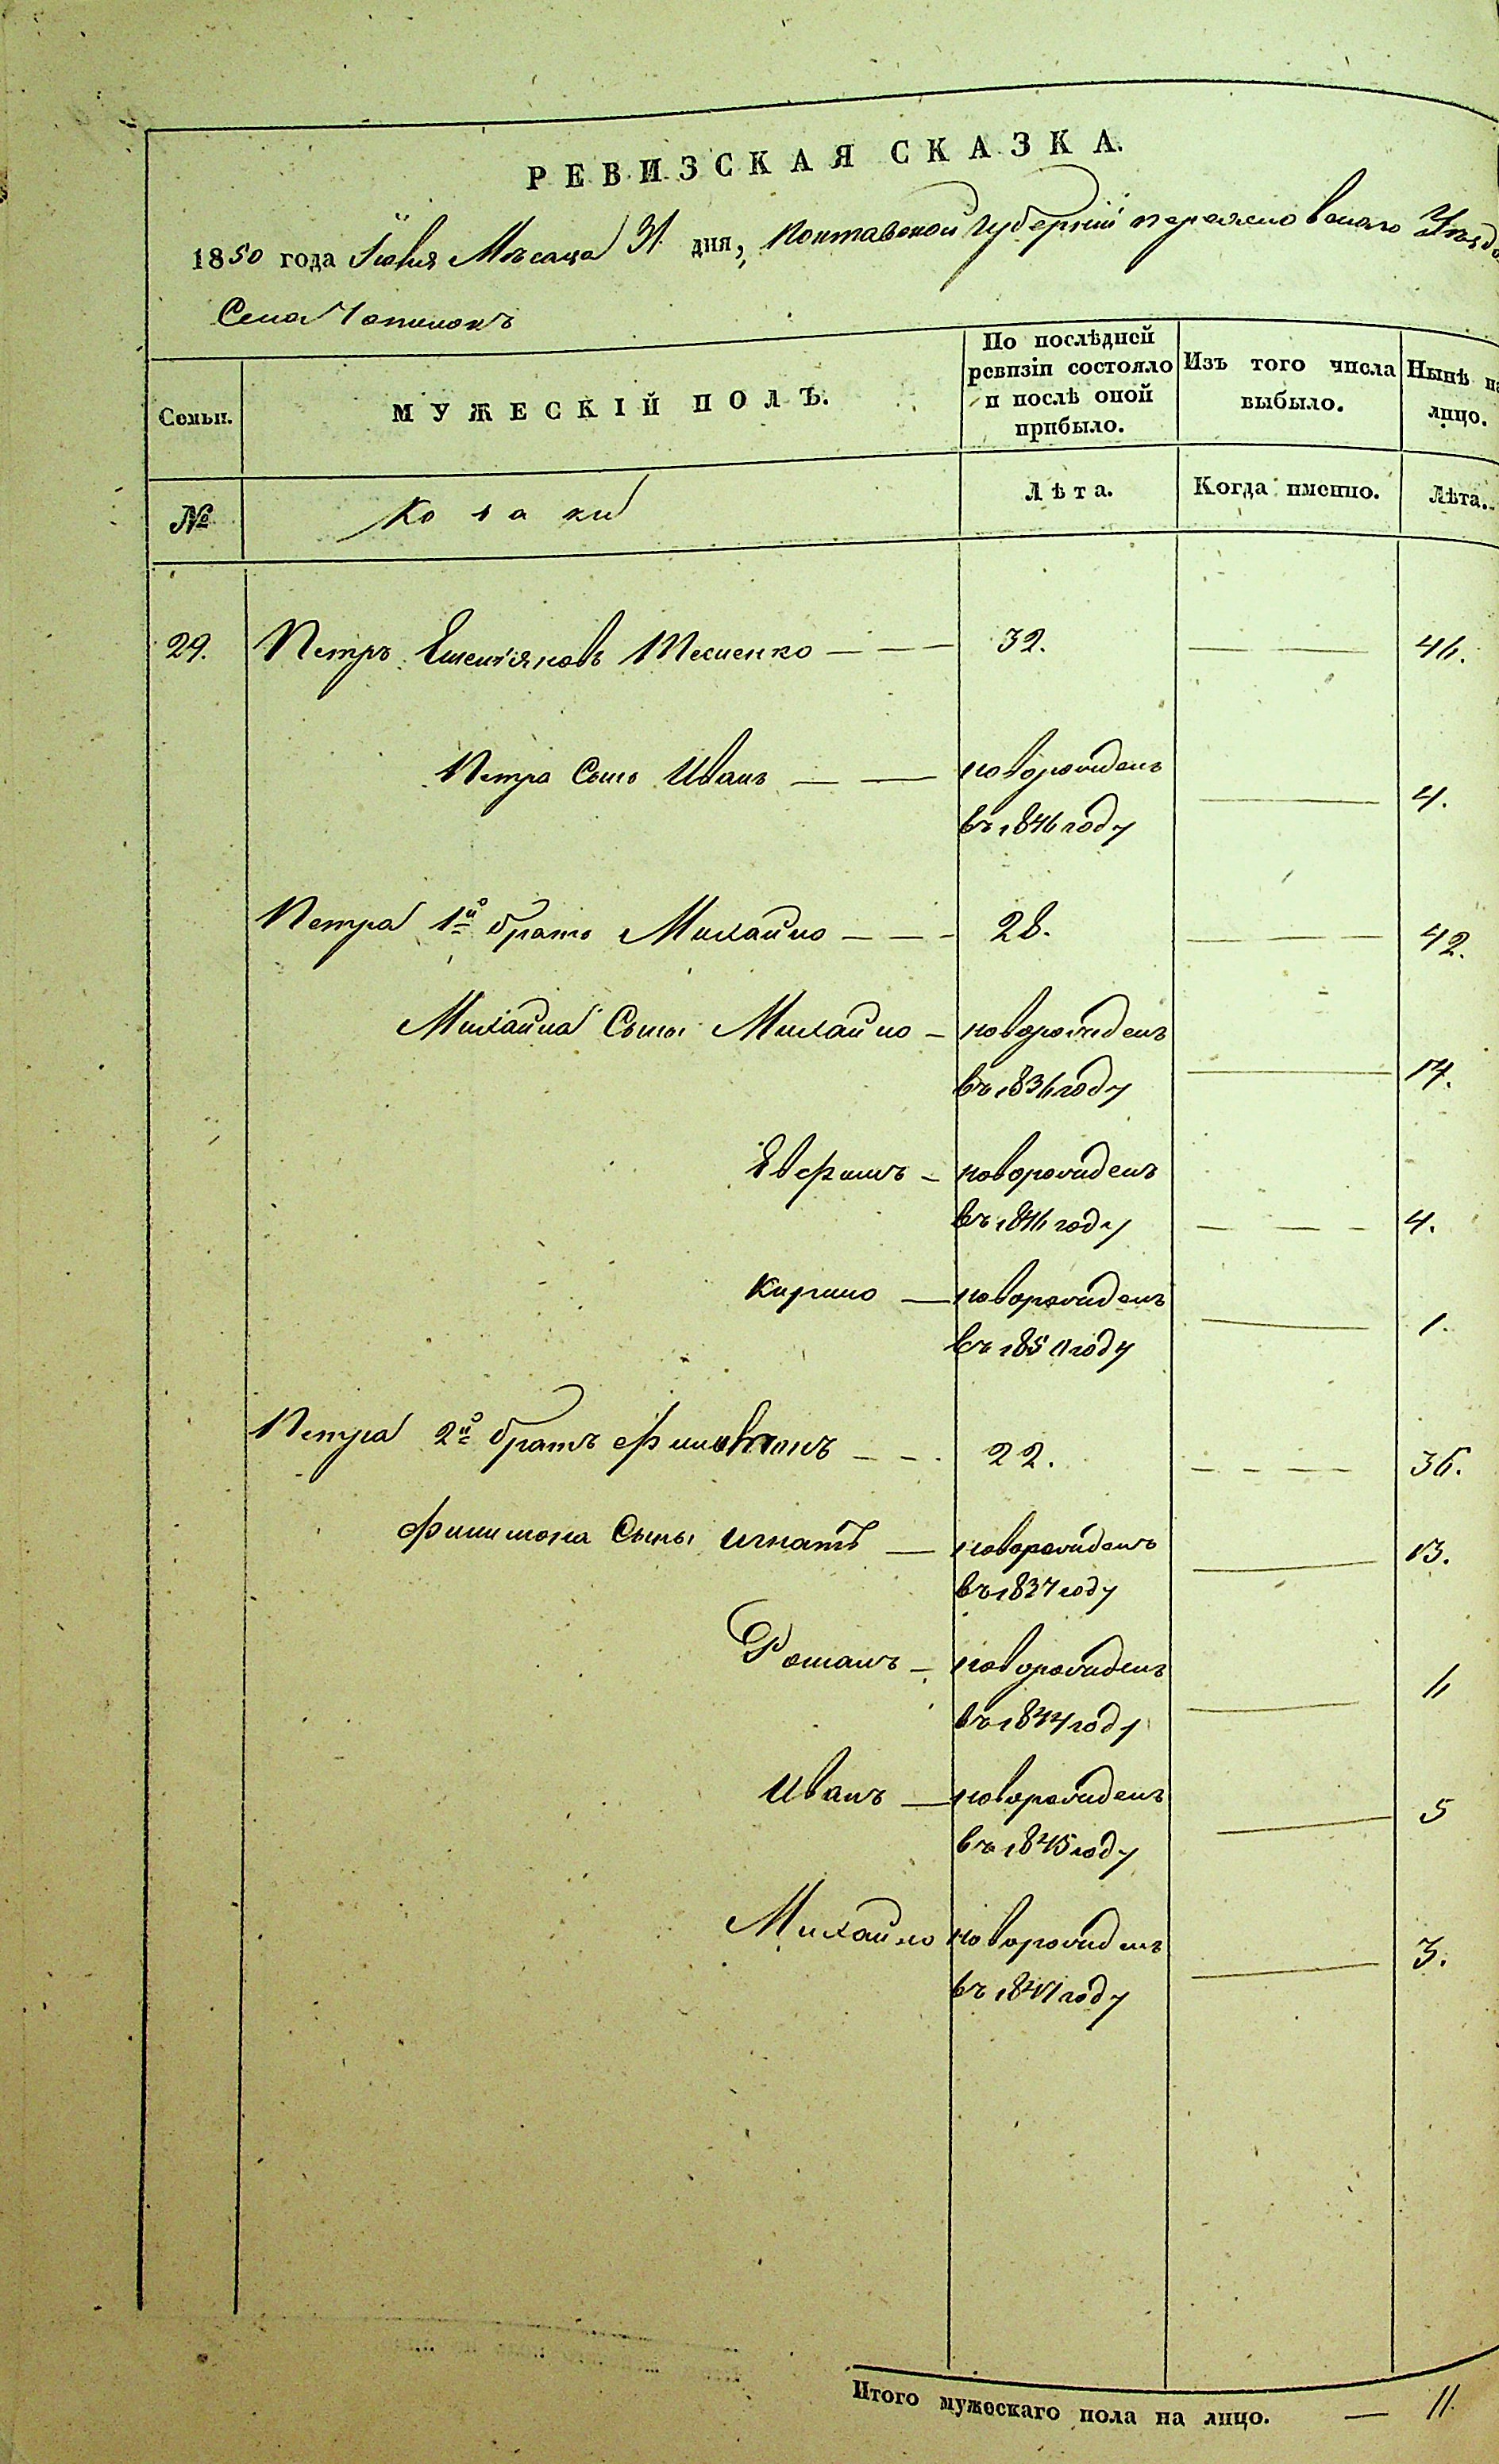 РЕВИЗСКАЯ СКАЗКА.
1850 года Іюня Мѣсаца 31 дня, Полтавской Губерніи переяславскаго Уѣзда
Села Чопилокъ
Семьи.
МУЖЕСКІЙ ПОЛЪ.
По послѣдней ревизіи состояло и послѣ оной прибыло.
Изъ того числа выбыло.
Нынѣ на лицо.
№
Козаки
Лѣта.
Когда именно.
Лѣта.
29. Петръ Емельяновъ — — — 32. — — 46.
Петра Сынъ Иванъ — — новорожденъ
въ 1846 году — 4.
Петра 1й братъ Михайло — — — 28. — — — 42.
Михайла Сыны Михайло — новорожденъ
въ 1836 году — 14.
Евфимъ — новорожденъ
въ 1846 году — — — 4.
Кирило — новорожденъ
въ 1850 году — 1.
Петра 2й братъ Филимонъ — — 22. — — — — 36.
Филимона Сыны Игнатъ — новорожденъ
въ 1837 году — 13.
Романъ — новорожденъ
въ 1844 году — 6
Иванъ — новорожденъ
въ 1845 году — 5
Михайло новорожденъ
въ 1847 году — 3.
Итого мужескаго пола на лицо. — 11.